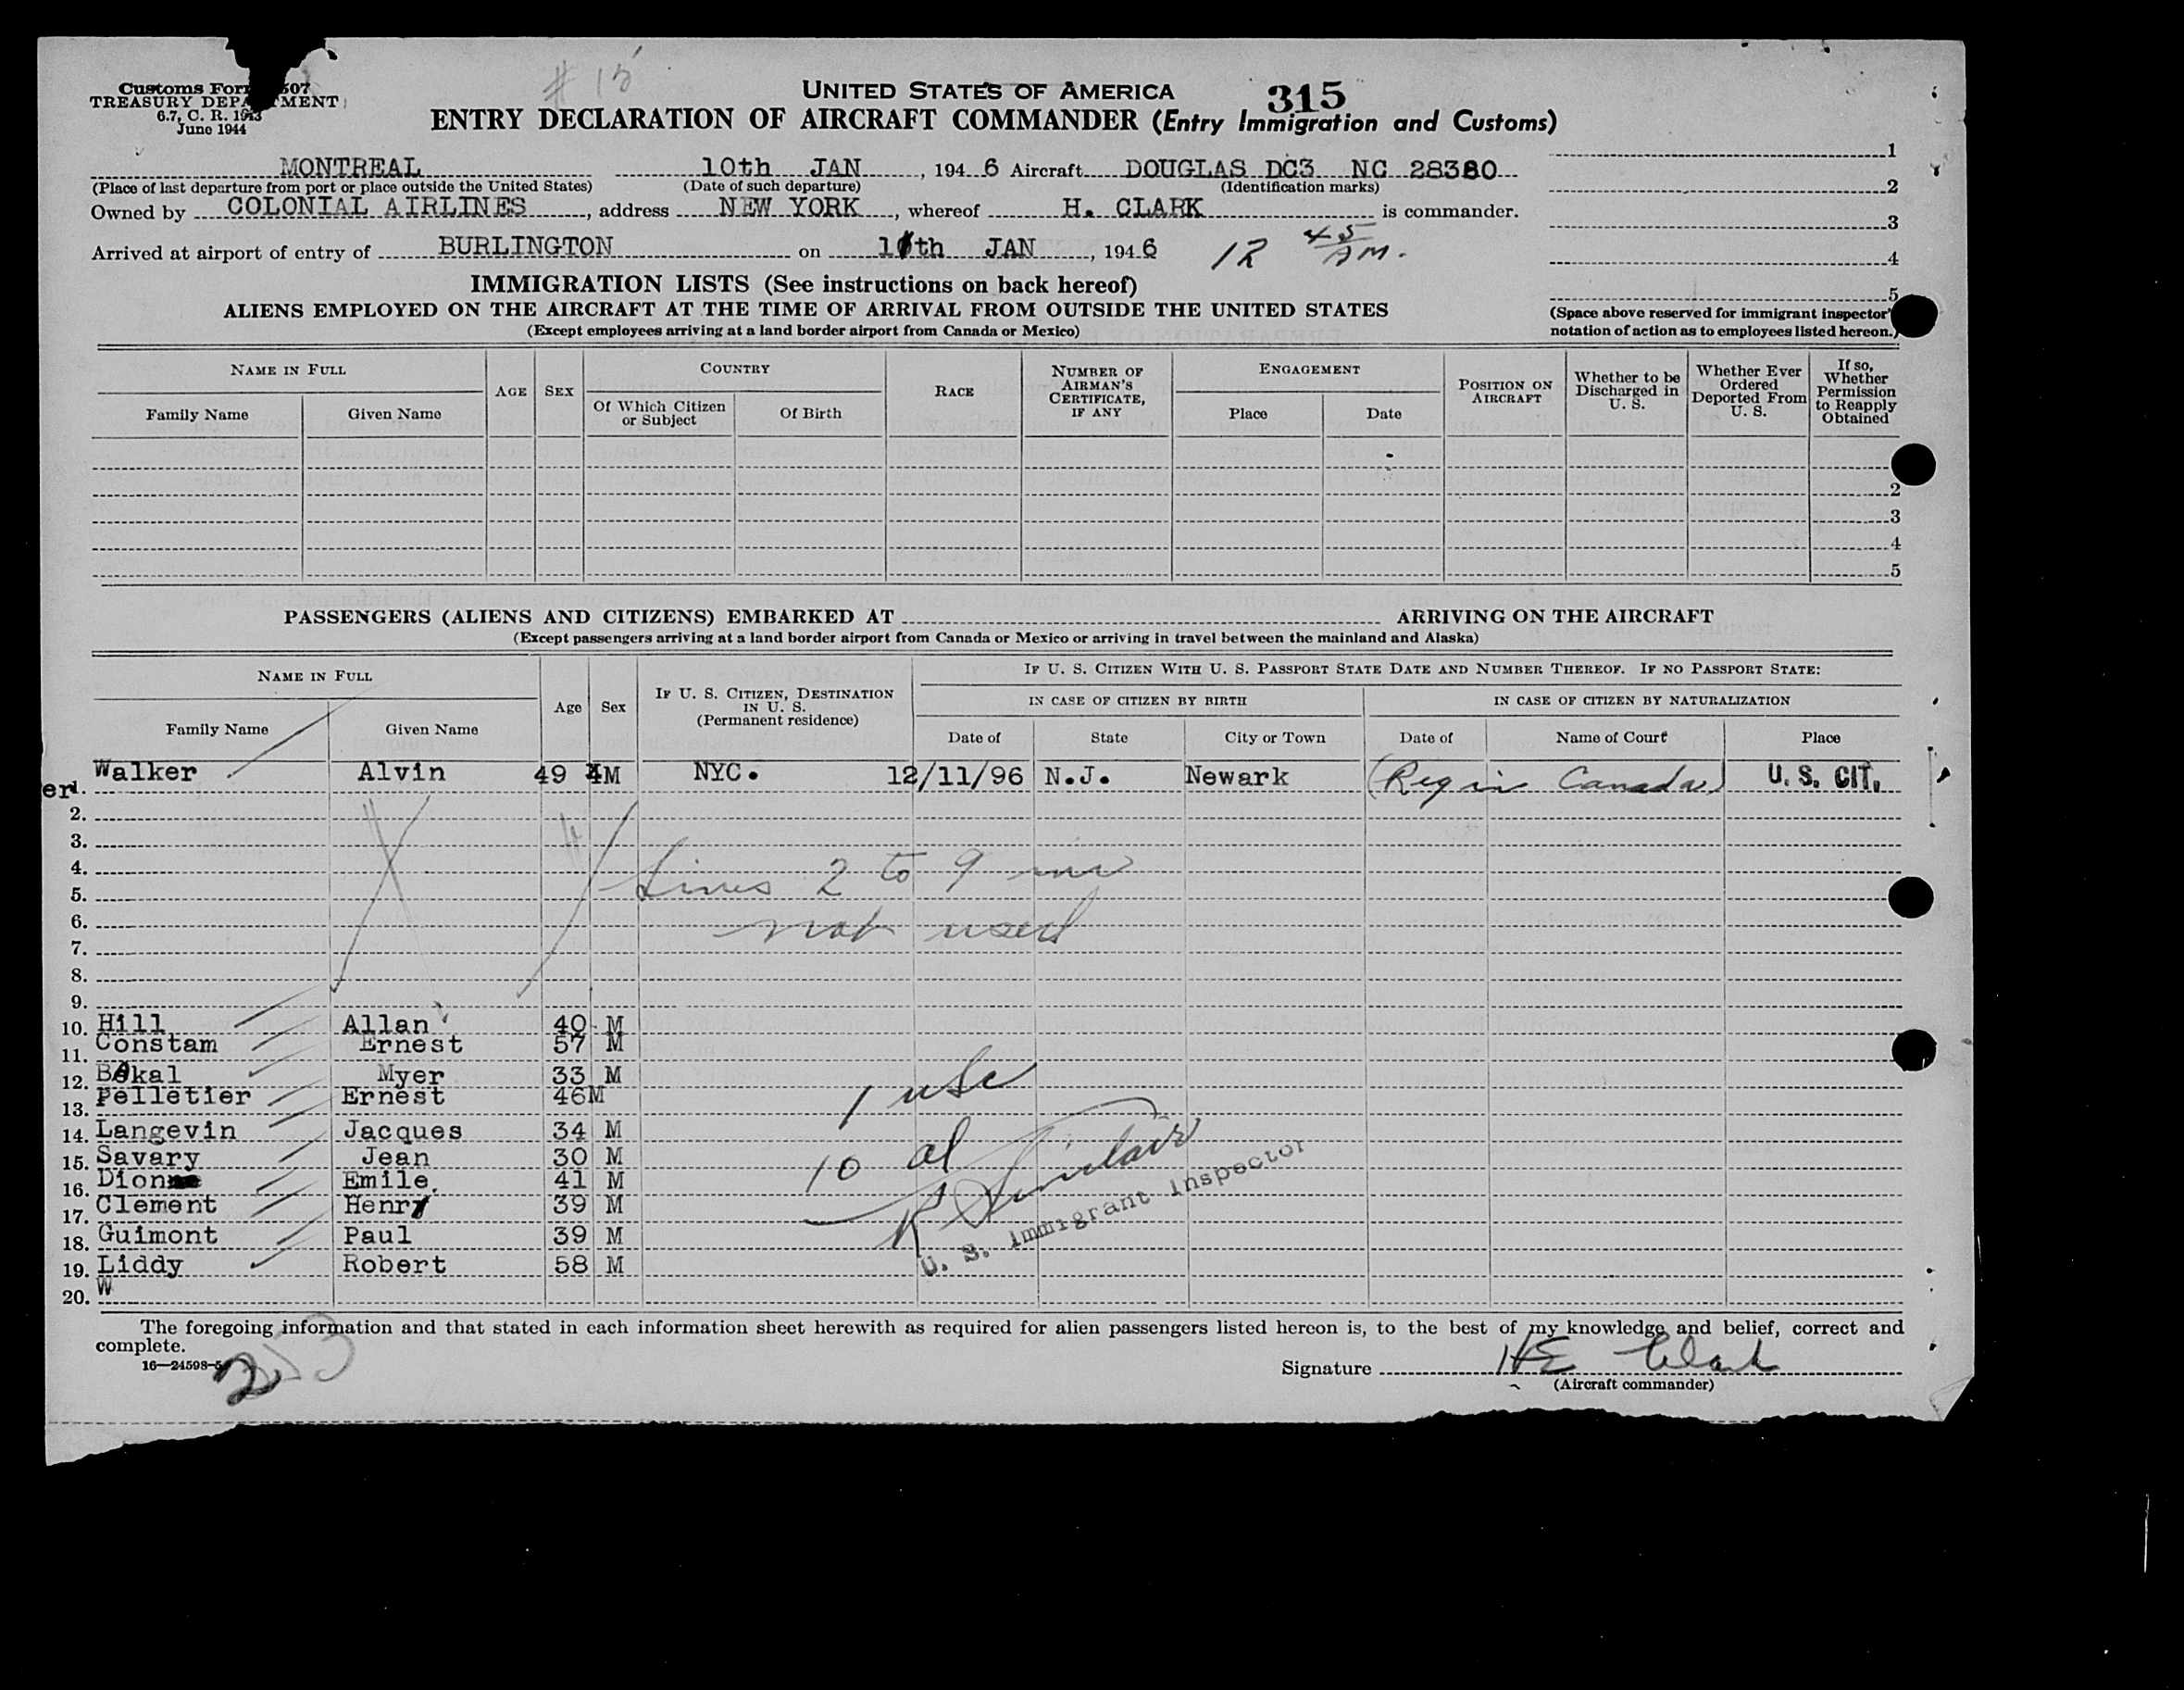 # 15
Customs Form 507
TREASURY DEPARTMENT
6.7, C. R. 1943
June 1944
UNITED STATES OF AMERICA 315
ENTRY DECLARATION OF AIRCRAFT COMMANDER (Entry Immigration and Customs)
MONTREAL 10th JAN , 194 6 Aircraft DOUGLAS DC3 NC 28380
(Place of last departure from port or place outside the United States) (Date of such departure) (Identification marks)
Owned by COLONIAL AIRLINES , address NEW YORK , whereof H. CLARK is commander.
Arrived at airport of entry of BURLINGTON on 11th JAN , 194 6 12 45 AM.
1
2
3
4
5
(Space above reserved for immigrant inspector's
notation of action as to employees listed hereon.)
IMMIGRATION LISTS (See instructions on back hereof)
ALIENS EMPLOYED ON THE AIRCRAFT AT THE TIME OF ARRIVAL FROM OUTSIDE THE UNITED STATES
(Except employees arriving at a land border airport from Canada or Mexico)
NAME IN FULL AGE SEX COUNTRY RACE NUMBER OF AIRMAN'S CERTIFICATE, IF ANY ENGAGEMENT POSITION ON AIRCRAFT Whether to be Discharged in U. S. Whether Ever Ordered Deported From U. S. If so, Whether Permission to Reapply Obtained
Family Name Given Name Of Which Citizen or Subject Of Birth Place Date
2
3
4
5
PASSENGERS (ALIENS AND CITIZENS) EMBARKED AT ARRIVING ON THE AIRCRAFT
(Except passengers arriving at a land border airport from Canada or Mexico or arriving in travel between the mainland and Alaska)
NAME IN FULL Age Sex IF U. S. CITIZEN, DESTINATION IN U. S. (Permanent residence) IF U. S. CITIZEN WITH U. S. PASSPORT STATE DATE AND NUMBER THEREOF. IF NO PASSPORT STATE:
IN CASE OF CITIZEN BY BIRTH IN CASE OF CITIZEN BY NATURALIZATION
Family Name Given Name Date of State City or Town Date of Name of Court Place
er1. Walker Alvin 49 M NYC. 12/11/96 N.J. Newark (Reg in Canada) U. S. CIT.
2.
3.
4. Lines 2 to 9 inc
5.
6. not used
7.
8.
9.
10. Hill Allan 40 M
11. Constam Ernest 57 M
12. BAkal Myer 33 M
13. Pelletier Ernest 46M
1 USC
14. Langevin Jacques 34 M
15. Savary Jean 30 M
10 al
16. Dion Emile. 41 M
17. Clement Henry 39 M
R Sinclair
18. Guimont Paul 39 M
U. S. Immigrant Inspector
19. Liddy Robert 58 M
20. W
The foregoing information and that stated in each information sheet herewith as required for alien passengers listed hereon is, to the best of my knowledge and belief, correct and
complete.
16—24598-
Signature HE Clark
(Aircraft commander)